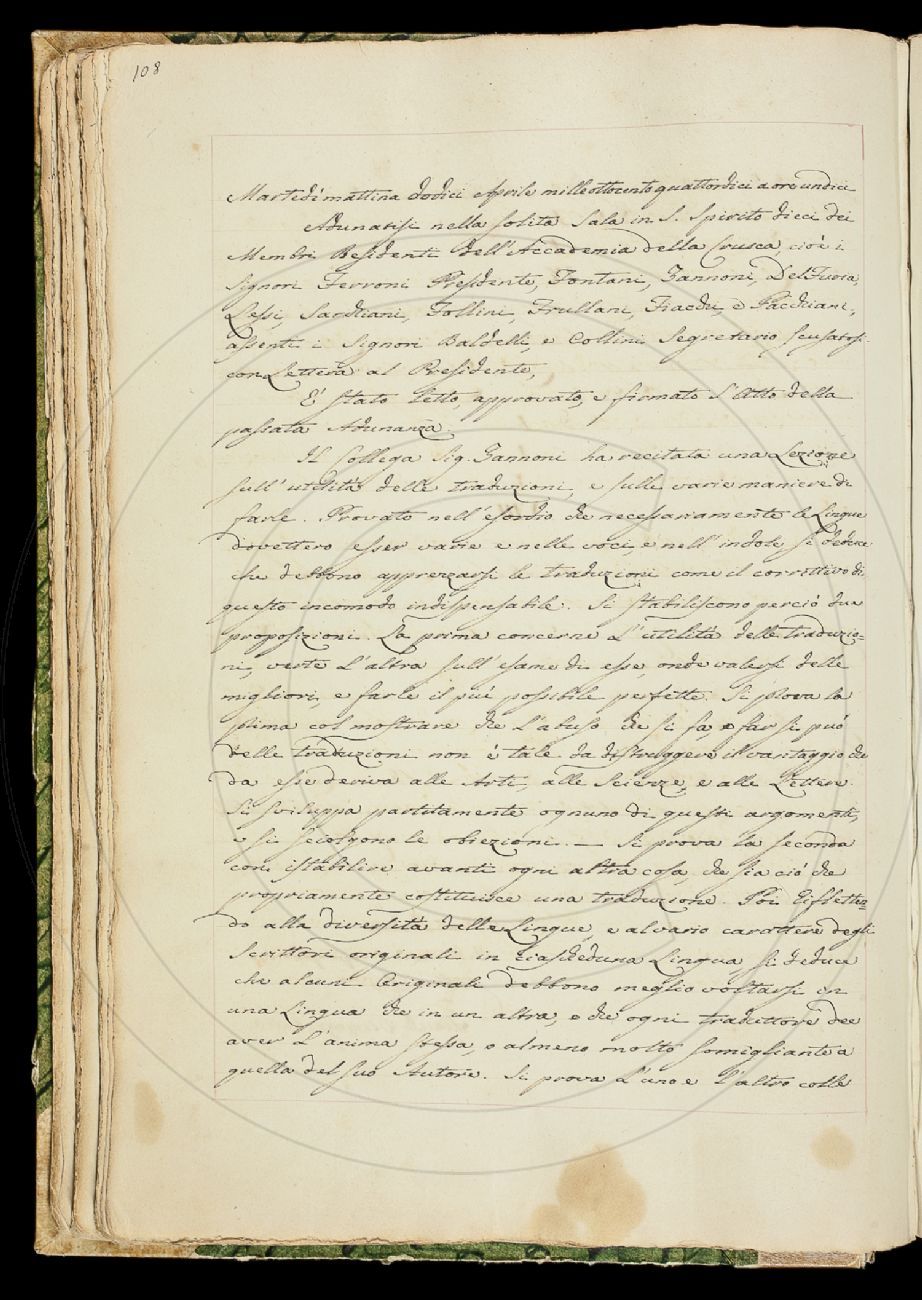 108
Martedì mattina dodici Aprile milleottocentoquattordici a ore undici
Adunatisi nella solita Sala in S. Spirito dieci dei
Membri Residenti dell'Accademia della Crusca, cioè i
Signori Ferroni Presidente, Fontani, Zannoni, Del Furia,
Lessi, Sarchiani, Follini, Frullani, Fiacchi, e Pacchiani,
assenti i Signori Baldelli, e Collini Segretario scusatosi
con Lettera al Presidente,
È stato letto, approvato, e firmato l'Atto della
passata Adunanza.
Il Collega Sig. Zannoni ha recitata una Lezione
sull'utilità delle traduzioni, e sulle varie maniere di
farle. Provato nell'esordio che necessariamente le Lingue
dovettero esser varie e nelle voci, e nell'indole si deduce
che debbono apprezzarsi le traduzioni come il corrottivo di
questo incomodo indispensabile. Si stabiliscono perciò due
proposizioni. La prima concerne l'utilità delle traduzio-
ni, verte l'altra sull'esame di esse, onde valersi delle
migliori, e farle il più possibile perfette. Si prova la
prima col mostrare che l'abuso che si fa, e far si può
delle traduzioni non è tale da distruggere il vantaggio che
da esse deriva alle Arti, alle Scienze, e alle Lettere.
Si sviluppa partitamente ognuno di questi argomenti,
e si sciolgono le obiezioni. — Si prova la seconda
con istabilire avanti ogni altra cosa, che sia ciò che
propriamente costituisce una traduzione. Poi riflетten=
do alla diversità delle Lingue, e al vario carattere degli
Scrittori originali in ciascheduna Lingua, si deduce
che alcuni Originali debbono meglio voltarsi in
una Lingua che in un altra, e che ogni traduttore dee
aver l'anima stessa, o almeno molto somigliante a
quella del suo Autore. Si prova l'uno e l'altro colle